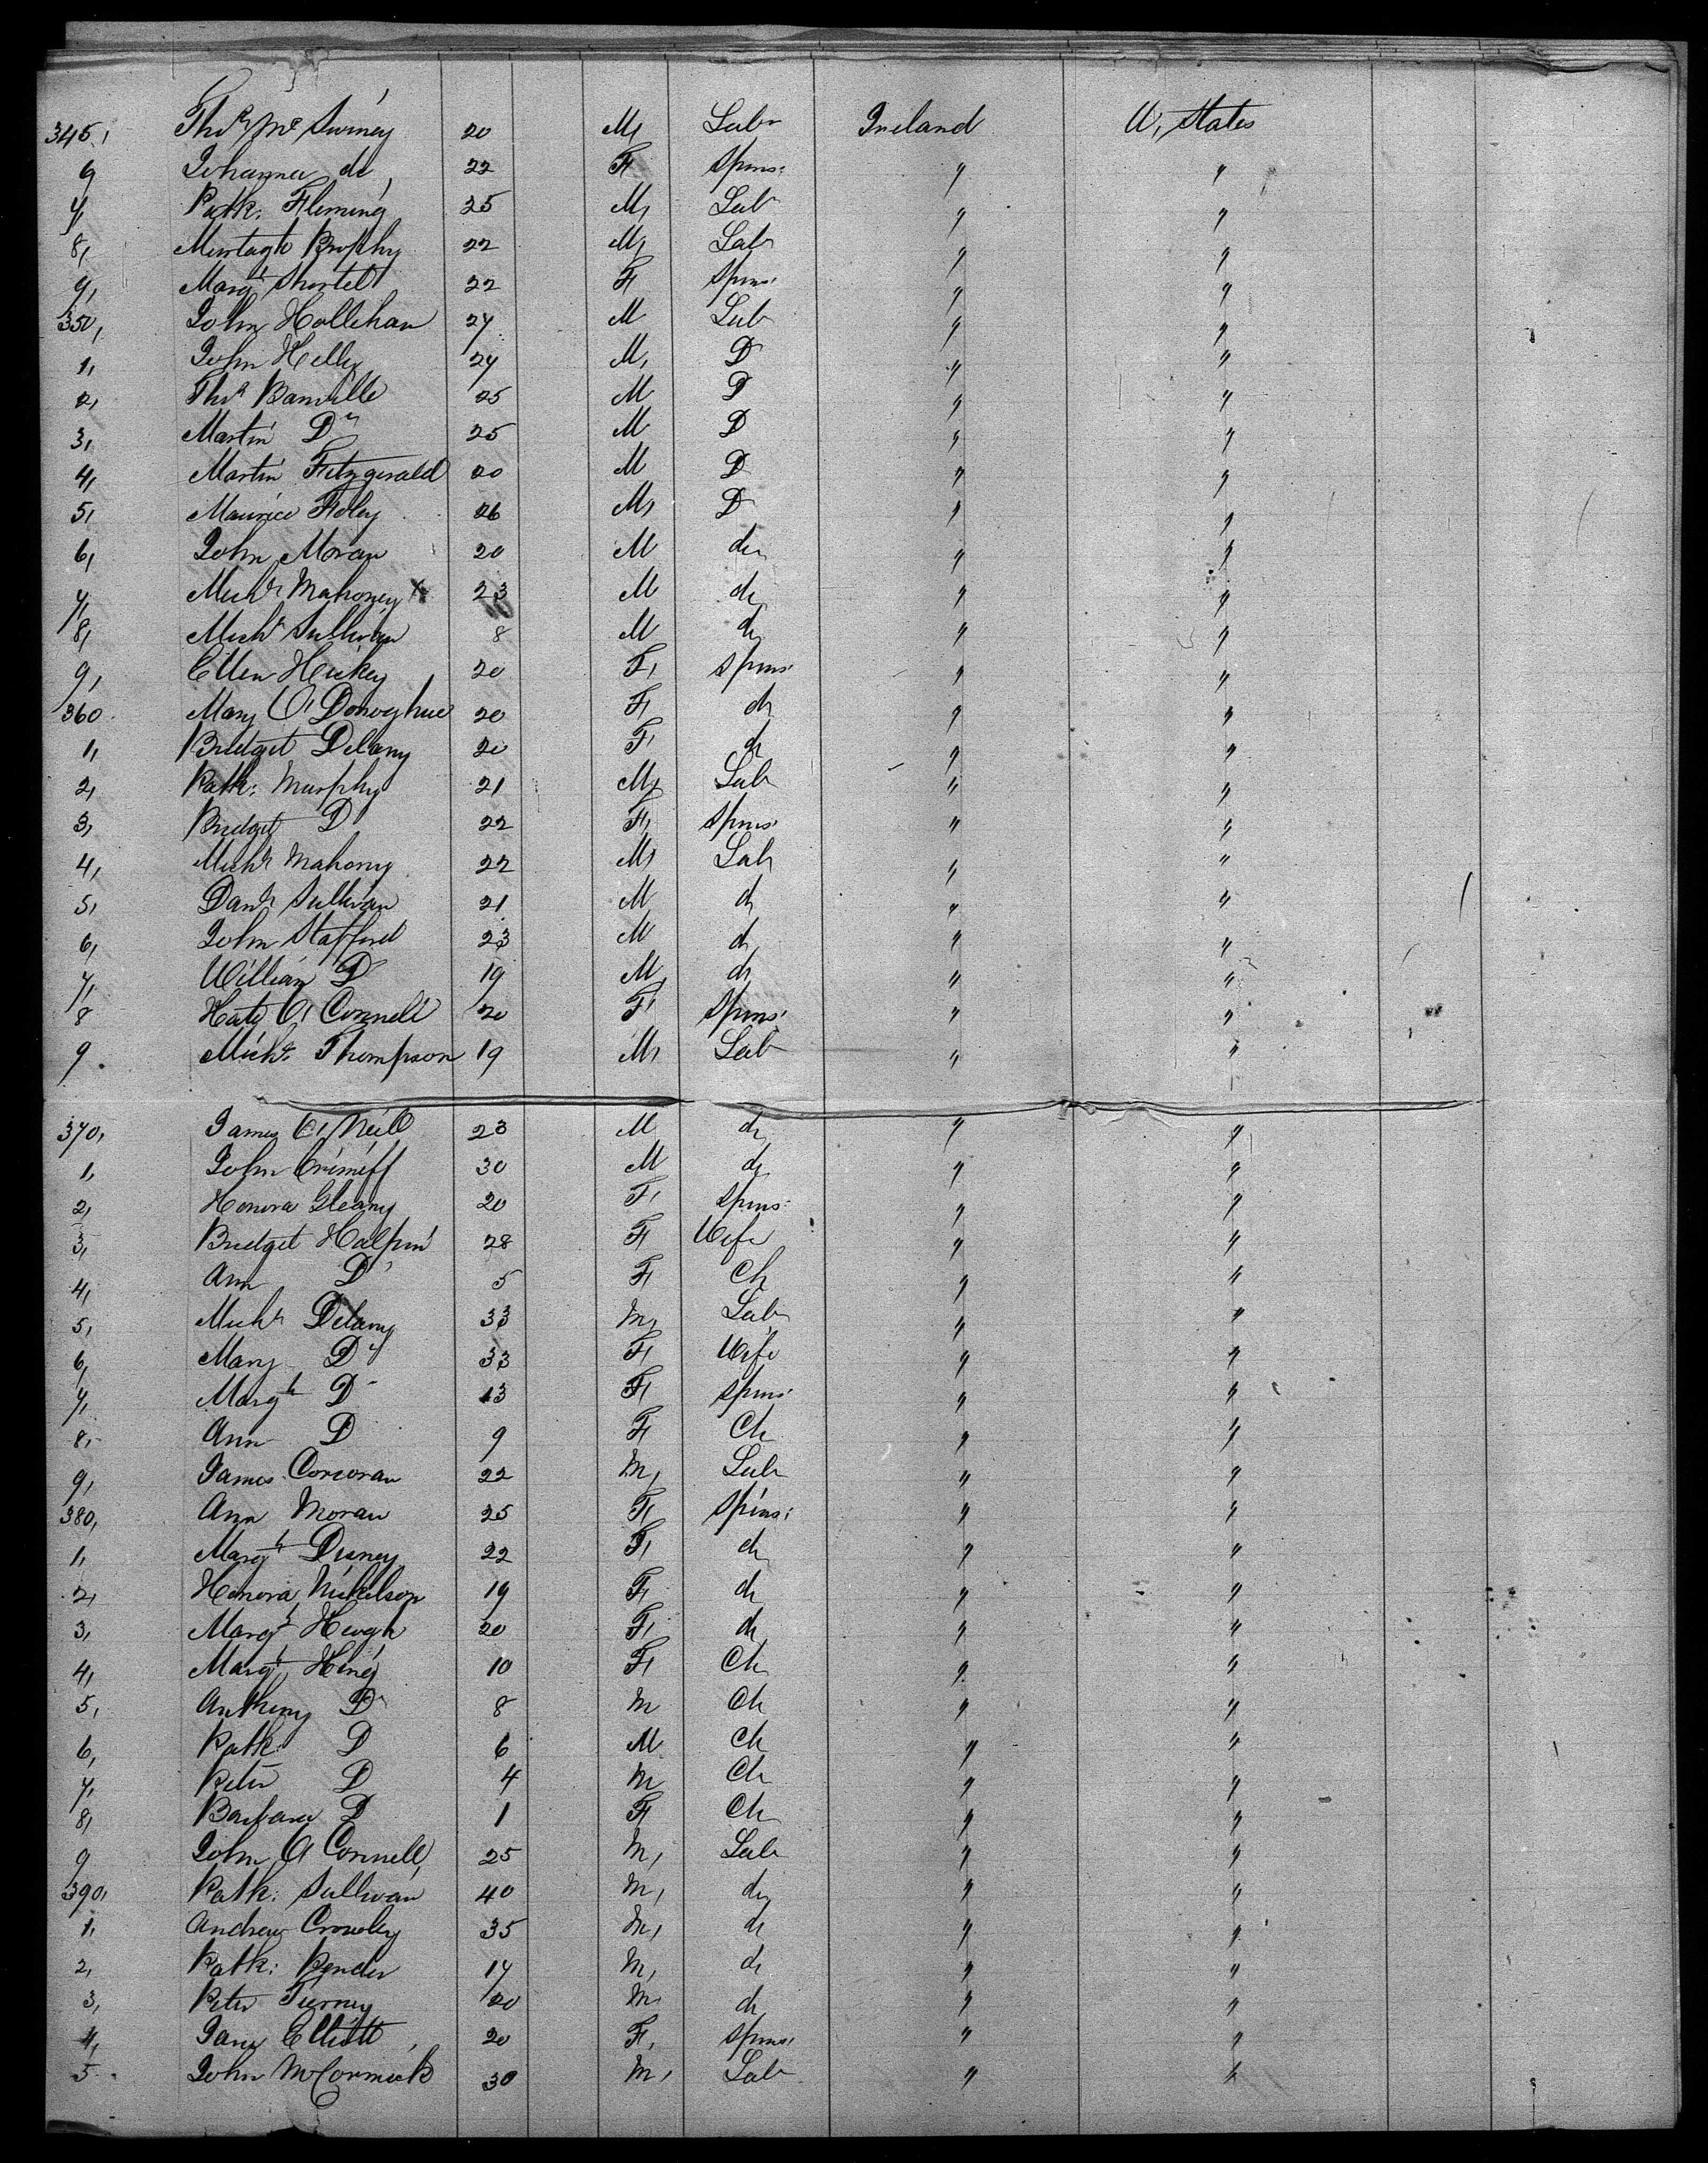 345, Thos Mc Swiney 20 M, Labr Ireland U, States
6 Johanna do, 22 F Spins: " "
7, Patk: Fleming 25 M, Lab " "
8, Murtagh Brophy 22 M, Labr " "
9, Margt Shortel 22 F, Spins: " "
350, John Hollihan 27 M Lab " "
1, John Kelly 27 M, D " "
2, Thos Banville 25 M D " "
3, Martin Do 25 M D " "
4, Martin Fitzgerald 20 M D " "
5, Maurice Foley 26 M, D " "
6, John Moran 20 M do " "
7, Michl Mahoney x 23 M do " "
8, Michl Sullivan 8 M do " "
9, Ellen Hickey 20 F, Spins: " "
360. Mary O'Donoghue 20 F, do " "
1, Bridget Delany 20 F, do " "
2, Patk: Murphy 21 M, Lab " "
3, Bridget D 22 F, Spins: " "
4, Michl Mahony 22 M, Lab " "
5, Danl Sullivan 21 M do " "
6, John Stafford 23 M do " "
7, William D 19 M, do " "
8 Katy O'Connell 20 F, Spins: " "
9. Michl Thompson 19 M, Lab " "
370, James O'Neill 23 M do " "
1, John 30 M do " "
2, Honora 20 F, Spins: " "
3, Bridget Halpin 28 F, Wife " "
4, Ann D 5 F, Ch " "
5, Michl Delany 33 M, Lab " "
6, Mary Do 33 F, Wife " "
7, Margt D 13 F, Spins: " "
8, Ann D 9 F, Ch " "
9, James Corcoran 22 M, Lab " "
380, Ann Moran 25 F, Spins: " "
1, Margt Disney 22 F, do " "
2, Honora Nickelson 19 F, do " "
3, Margt Keogh 20 F, do " "
4, Margt King 10 F, Ch " "
5, Anthony D 8 M Ch " "
6, Patk: D 6 M Ch " "
7, Peter D 4 M Ch " "
8, Barbara D 1 F, Ch " "
9 John O'Connell 25 M, Lab " "
390, Patk: Sullivan 40 M, do " "
1, Andrew Crowley 35 M, do " "
2, Patk: Pender 17 M, do " "
3, Peter Tierney 20 M do " "
4, Jane Elliott, 20 F, Spins: " "
5. John McCormick 30 M, Lab " "